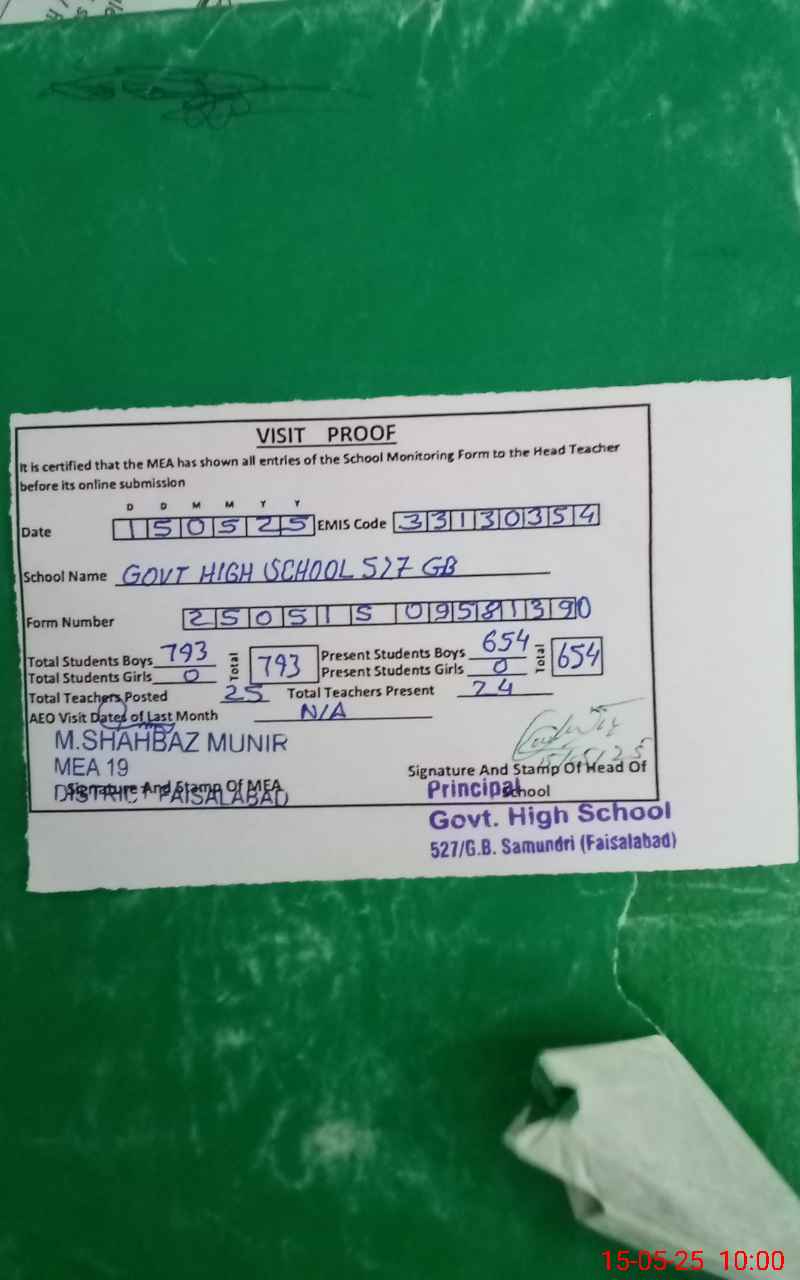 VISIT PROOF
It is certified that the MEA has shown all entries of the School Monitoring Form to the Head Teacher
before its online submission
D D M M Y Y
Date 150525 EMIS Code 33130354
School Name GOVT HIGH SCHOOL 527 GB
Form Number 250515 09581390
Total Students Boys 793 Total 793 Present Students Boys 654 Total 654
Total Students Girls 0 Present Students Girls 0
Total Teachers Posted 25 Total Teachers Present 24
AEO Visit Dates of Last Month N/A
M.SHAHBAZ MUNIR
MEA 19
15/05/25
Signature And Stamp Of MEA Signature And Stamp Of Head Of
School
DISTRICT FAISALABAD
Principal
Govt. High School
527/G.B. Samundri (Faisalabad)
15-05-25 10:00